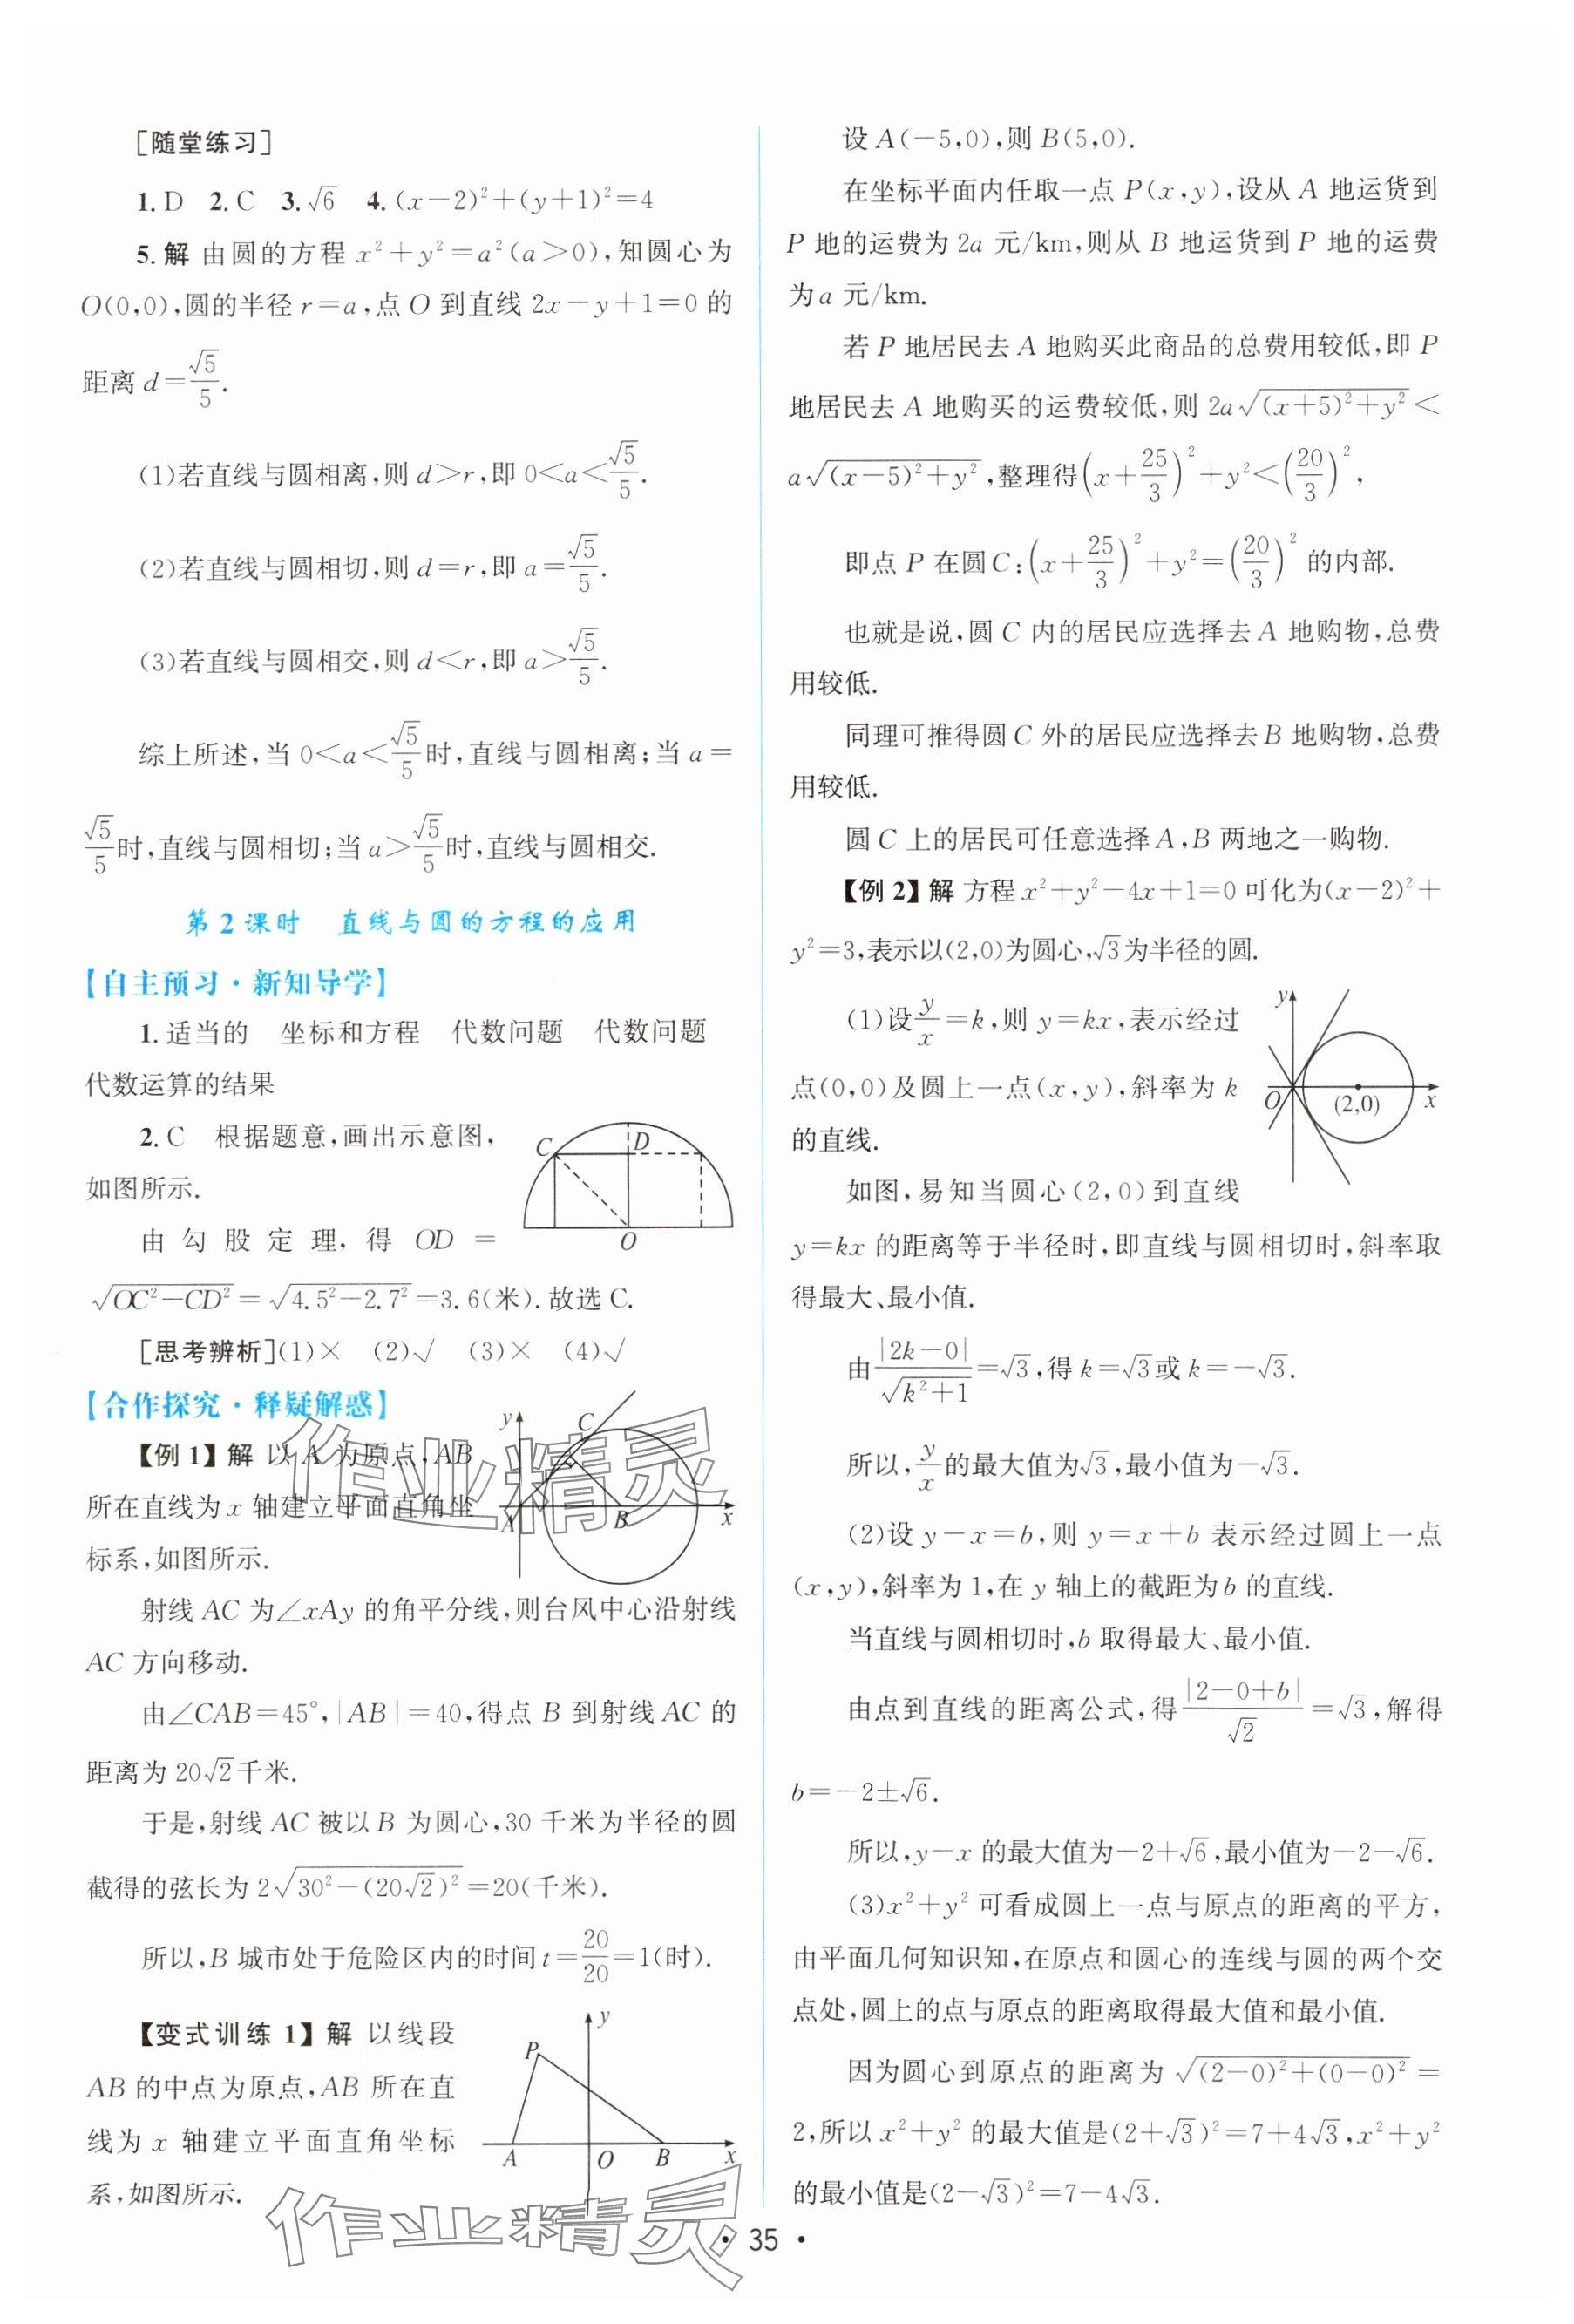 [随堂练习]
1.D 2.C 3.√6 4.(x－2)²＋(y＋1)²＝4
5.解 由圆的方程 x²＋y²＝a²(a＞0),知圆心为
O(0,0),圆的半径 r＝a,点 O 到直线 2x－y＋1＝0 的
距离 d＝√5/5.
(1)若直线与圆相离,则 d＞r,即 0＜a＜√5/5.
(2)若直线与圆相切,则 d＝r,即 a＝√5/5.
(3)若直线与圆相交,则 d＜r,即 a＞√5/5.
综上所述,当 0＜a＜√5/5时,直线与圆相离;当 a＝
√5/5时,直线与圆相切;当 a＞√5/5时,直线与圆相交.
第 2 课时 直线与圆的方程的应用
【自主预习·新知导学】
1.适当的 坐标和方程 代数问题 代数问题
代数运算的结果
2.C 根据题意,画出示意图,
如图所示.
C D O
由勾股定理,得 OD＝
√(OC²－CD²)＝√(4.5²－2.7²)＝3.6(米).故选 C.
[思考辨析](1)× (2)√ (3)× (4)√
【合作探究·释疑解惑】
【例 1】解 以 A 为原点,AB
所在直线为 x 轴建立平面直角坐
标系,如图所示.
y C A B x
射线 AC 为∠xAy 的角平分线,则台风中心沿射线
AC 方向移动.
由∠CAB＝45°,|AB|＝40,得点 B 到射线 AC 的
距离为 20√2千米.
于是,射线 AC 被以 B 为圆心,30 千米为半径的圆
截得的弦长为 2√(30²－(20√2)²)＝20(千米).
所以,B 城市处于危险区内的时间 t＝20/20＝1(时).
【变式训练 1】解 以线段
AB 的中点为原点,AB 所在直
线为 x 轴建立平面直角坐标
系,如图所示.
y P A O B x
设 A(－5,0),则 B(5,0).
在坐标平面内任取一点 P(x,y),设从 A 地运货到
P 地的运费为 2a 元/km,则从 B 地运货到 P 地的运费
为 a 元/km.
若 P 地居民去 A 地购买此商品的总费用较低,即 P
地居民去 A 地购买的运费较低,则 2a√((x＋5)²＋y²)＜
a√((x－5)²＋y²),整理得(x＋25/3)²＋y²＜(20/3)²,
即点 P 在圆 C:(x＋25/3)²＋y²＝(20/3)² 的内部.
也就是说,圆 C 内的居民应选择去 A 地购物,总费
用较低.
同理可推得圆 C 外的居民应选择去 B 地购物,总费
用较低.
圆 C 上的居民可任意选择 A,B 两地之一购物.
【例 2】解 方程 x²＋y²－4x＋1＝0 可化为(x－2)²＋
y²＝3,表示以(2,0)为圆心,√3为半径的圆.
(1)设y/x＝k,则 y＝kx,表示经过
点(0,0)及圆上一点(x,y),斜率为 k
的直线.
y O (2,0) x
如图,易知当圆心(2,0)到直线
y＝kx 的距离等于半径时,即直线与圆相切时,斜率取
得最大、最小值.
由|2k－0|/√(k²＋1)＝√3,得 k＝√3或 k＝－√3.
所以,y/x的最大值为√3,最小值为－√3.
(2)设 y－x＝b,则 y＝x＋b 表示经过圆上一点
(x,y),斜率为 1,在 y 轴上的截距为 b 的直线.
当直线与圆相切时,b 取得最大、最小值.
由点到直线的距离公式,得|2－0＋b|/√2＝√3,解得
b＝－2±√6.
所以,y－x 的最大值为－2＋√6,最小值为－2－√6.
(3)x²＋y² 可看成圆上一点与原点的距离的平方,
由平面几何知识知,在原点和圆心的连线与圆的两个交
点处,圆上的点与原点的距离取得最大值和最小值.
因为圆心到原点的距离为 √((2－0)²＋(0－0)²)＝
2,所以 x²＋y² 的最大值是(2＋√3)²＝7＋4√3,x²＋y²
的最小值是(2－√3)²＝7－4√3.
·35·
作业精灵
作业精灵